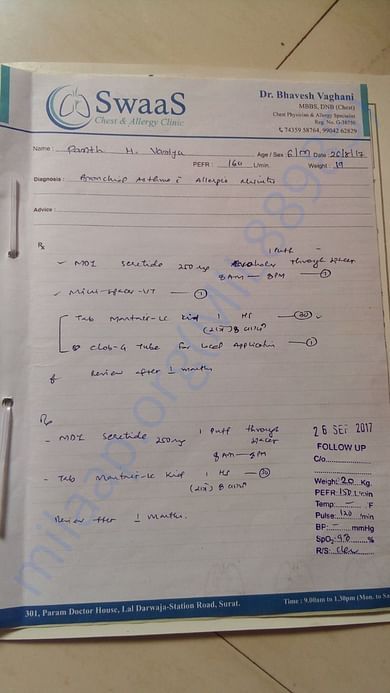 SwaaS
Chest & Allergy Clinic
Dr. Bhavesh Vaghani
MBBS, DNB (Chest)
Chest Physician & Allergy Specialist
Reg. No. G-38750
74359 58764, 99042 62829
Name : H. Age / Sex 6/M Date 26/8/17
PEFR : 160 L/min Weight : 19
Diagnosis : Bronchial Asthma Allergic
Advice :
Rx
1 Puff
MDI seretide 250 through spacer
8AM — 8PM 1
Mini-spacer-VT 1
Tab Montair-LC Kid 1 HS 30
Clob-G Tube for local Application 1
Review after 1 months
Rx
- MDI seretide 250 1 Puff through spacer
8AM — 8PM
- Tab Montair-LC Kid 1 HS 30
Review after 1 months.
26 SEP 2017
FOLLOW UP
C/o
Weight: 20 Kg.
PEFR: 150 L/min
Temp: - F
Pulse: 120 /min
BP: - mmHg
SpO2: 98 %
R/S: clear
milaap.org
301, Param Doctor House, Lal Darwaja-Station Road, Surat.
Time : 9.00am to 1.30pm (Mon. to Sa